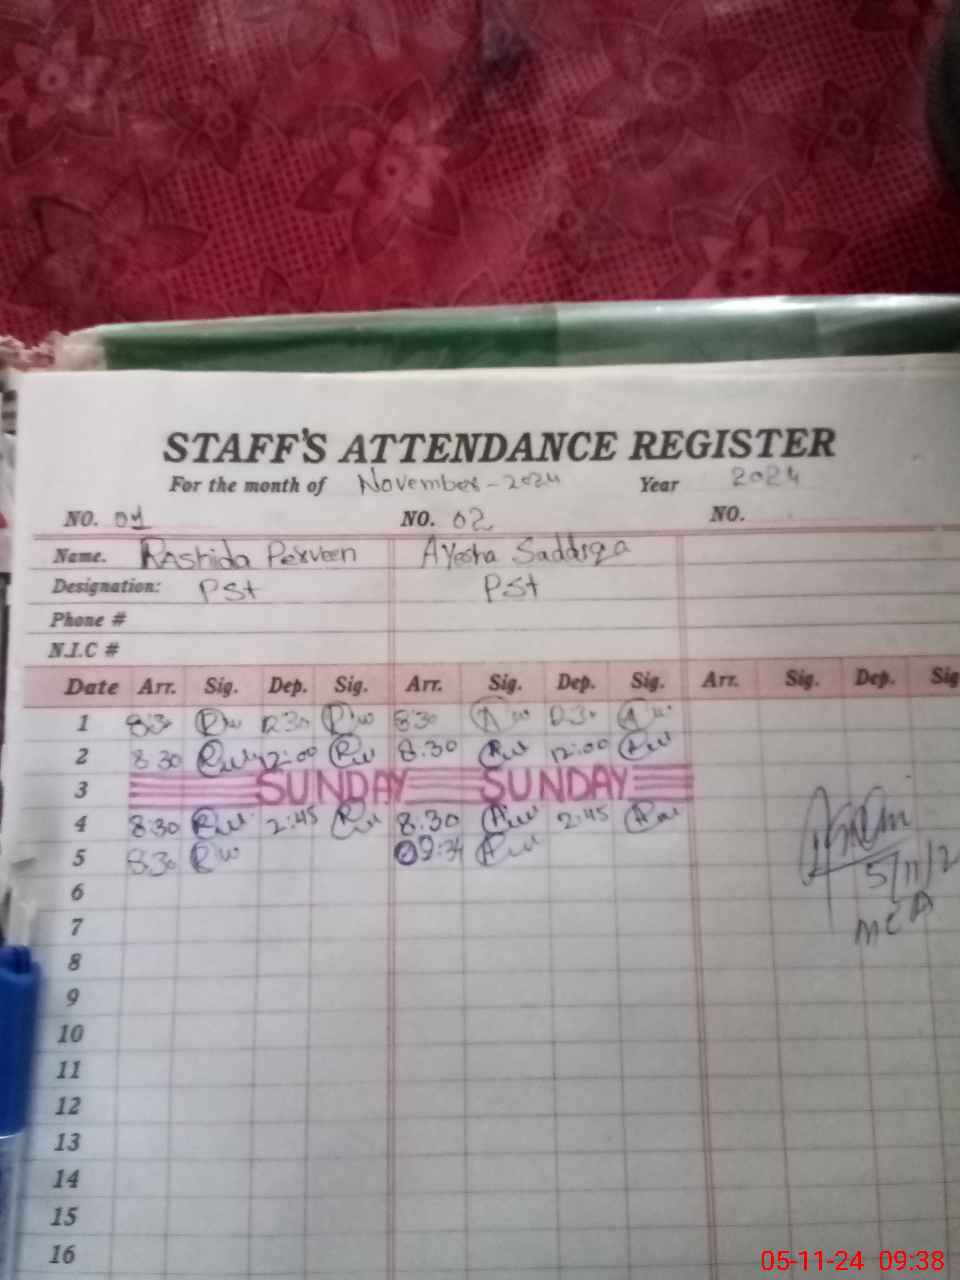 STAFF'S ATTENDANCE REGISTER
For the month of November-2024 Year 2024
NO. 01 NO. 02 NO.
Name. Rashida Perveen Ayesha Saddiqa
Designation: PSt PSt
Phone #
N.I.C #
Date Arr. Sig. Dep. Sig. Arr. Sig. Dep. Sig. Arr. Sig. Dep. Sig
1 8:30 12:30 8:30 12:30
2 8:30 12:00 8:30 12:00
3 SUNDAY SUNDAY
4 8:30 2:45 8:30 2:45
5 8:30 09:34
5/11/2
MEA
6
7
8
9
10
11
12
13
14
15
16
05-11-24 09:38